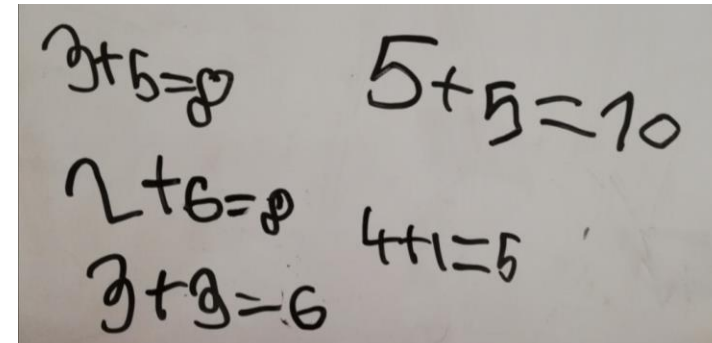 3+5=8
2+6=8
3+3=6
5+5=10
4+1=5